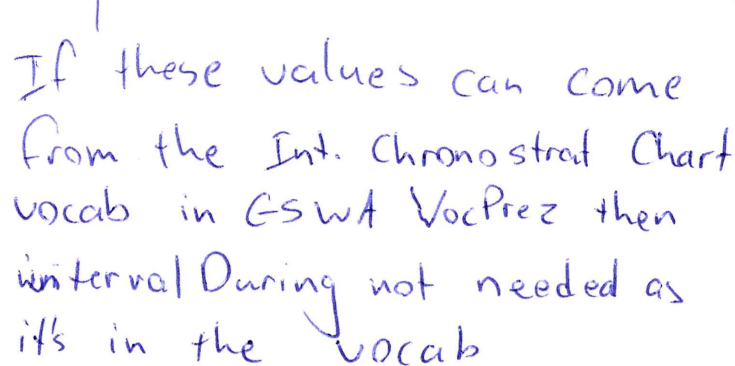 If these values can come
from the Int. Chronostrat Chart
vocab in GSWA VocPrez then
intervalDuring not needed as
it's in the vocab